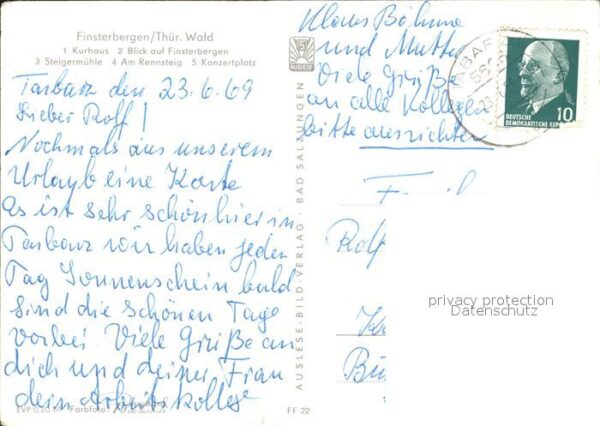 Finsterbergen/Thür. Wald
1 Kurhaus 2 Blick auf Finsterbergen
3 Steigermühle 4 Am Rennsteig 5 Konzertplatz
AUSLESE
Tabarz den 23.6.69
Lieber Rolf!
Nochmals aus unserem
Urlaub eine Karte
es ist sehr schön hier in
Tabarz wir haben jeden
Tag Sonnenschein bald
sind die schönen Tage
vorbei. Viele Grüße an
dich und deiner Frau
dein Arbeitskollege
EVP 0,20 Farbfoto
FF 22
AUSLESE-BILD-VERLAG - BAD SALZUNGEN
Klaus Böhme
und Mutter
Viele Grüße
an alle Kollegen
bitte ausrichten
DEUTSCHE
DEMOKRATISCHE REP
10
Rolf
privacy protection
Datenschutz